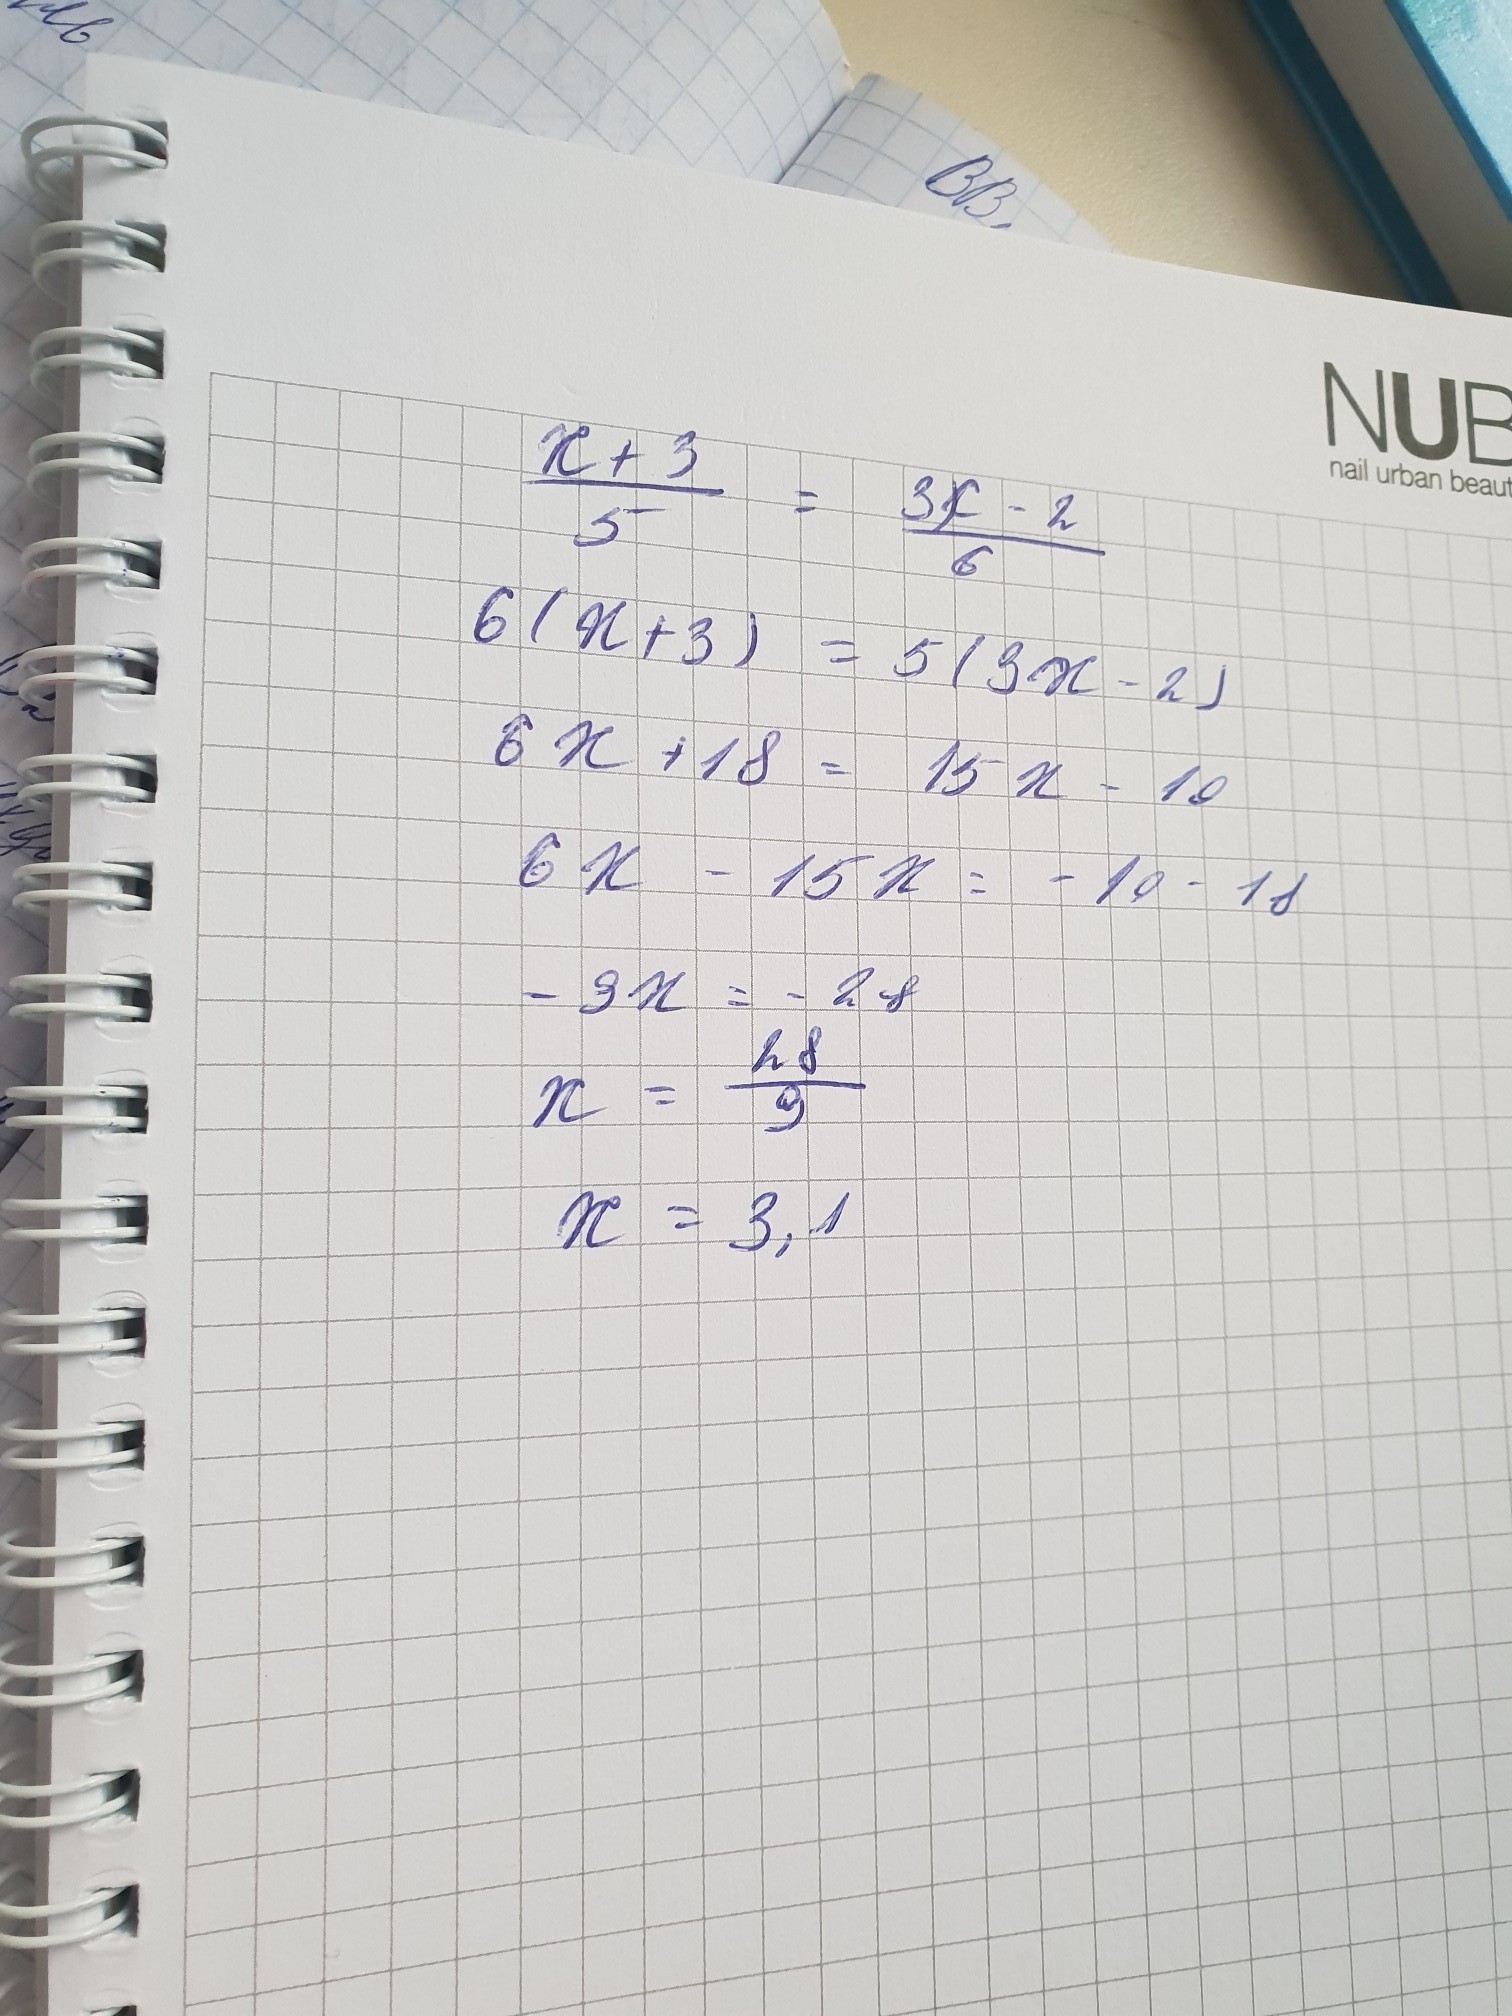 BB,
NUB
nail urban beaut
x + 3 / 5 = 3x - 2 / 6
6(x+3) = 5(3x-2)
6x +18 = 15x - 10
6x - 15x = -10 - 18
-9x = -28
x = 28 / 9
x = 3,1